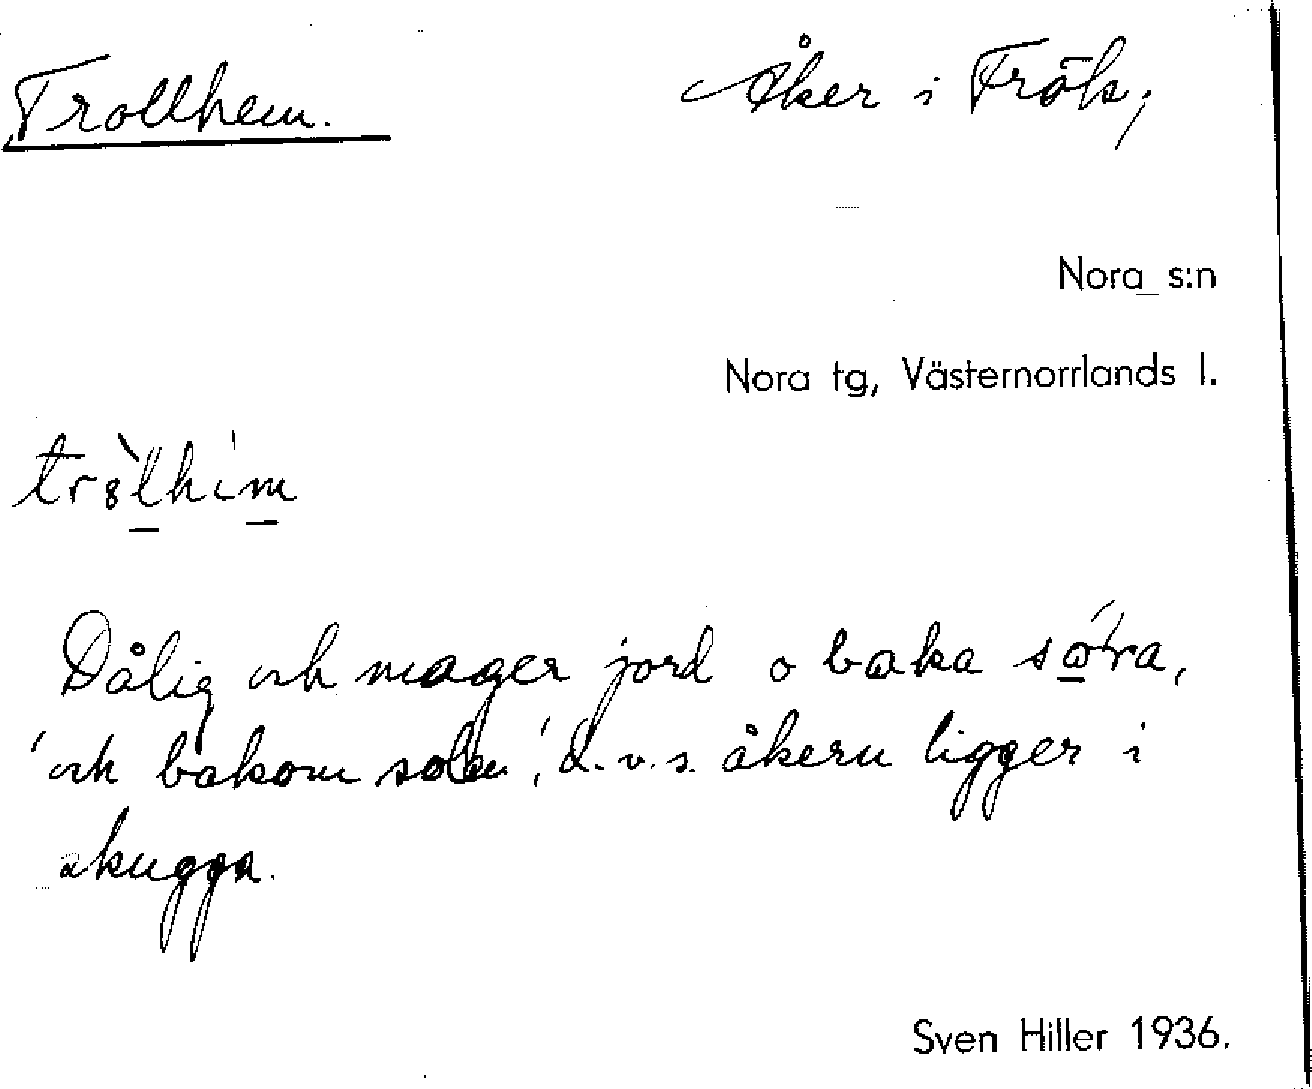 Trollhem. Åker i Frök,
Nora s:n
Nora tg, Västernorrlands l.
Dålig och mager jord o baka
'och bakom solen', d.v.s. åkern ligger i
skugga.
Sven Hiller 1936.